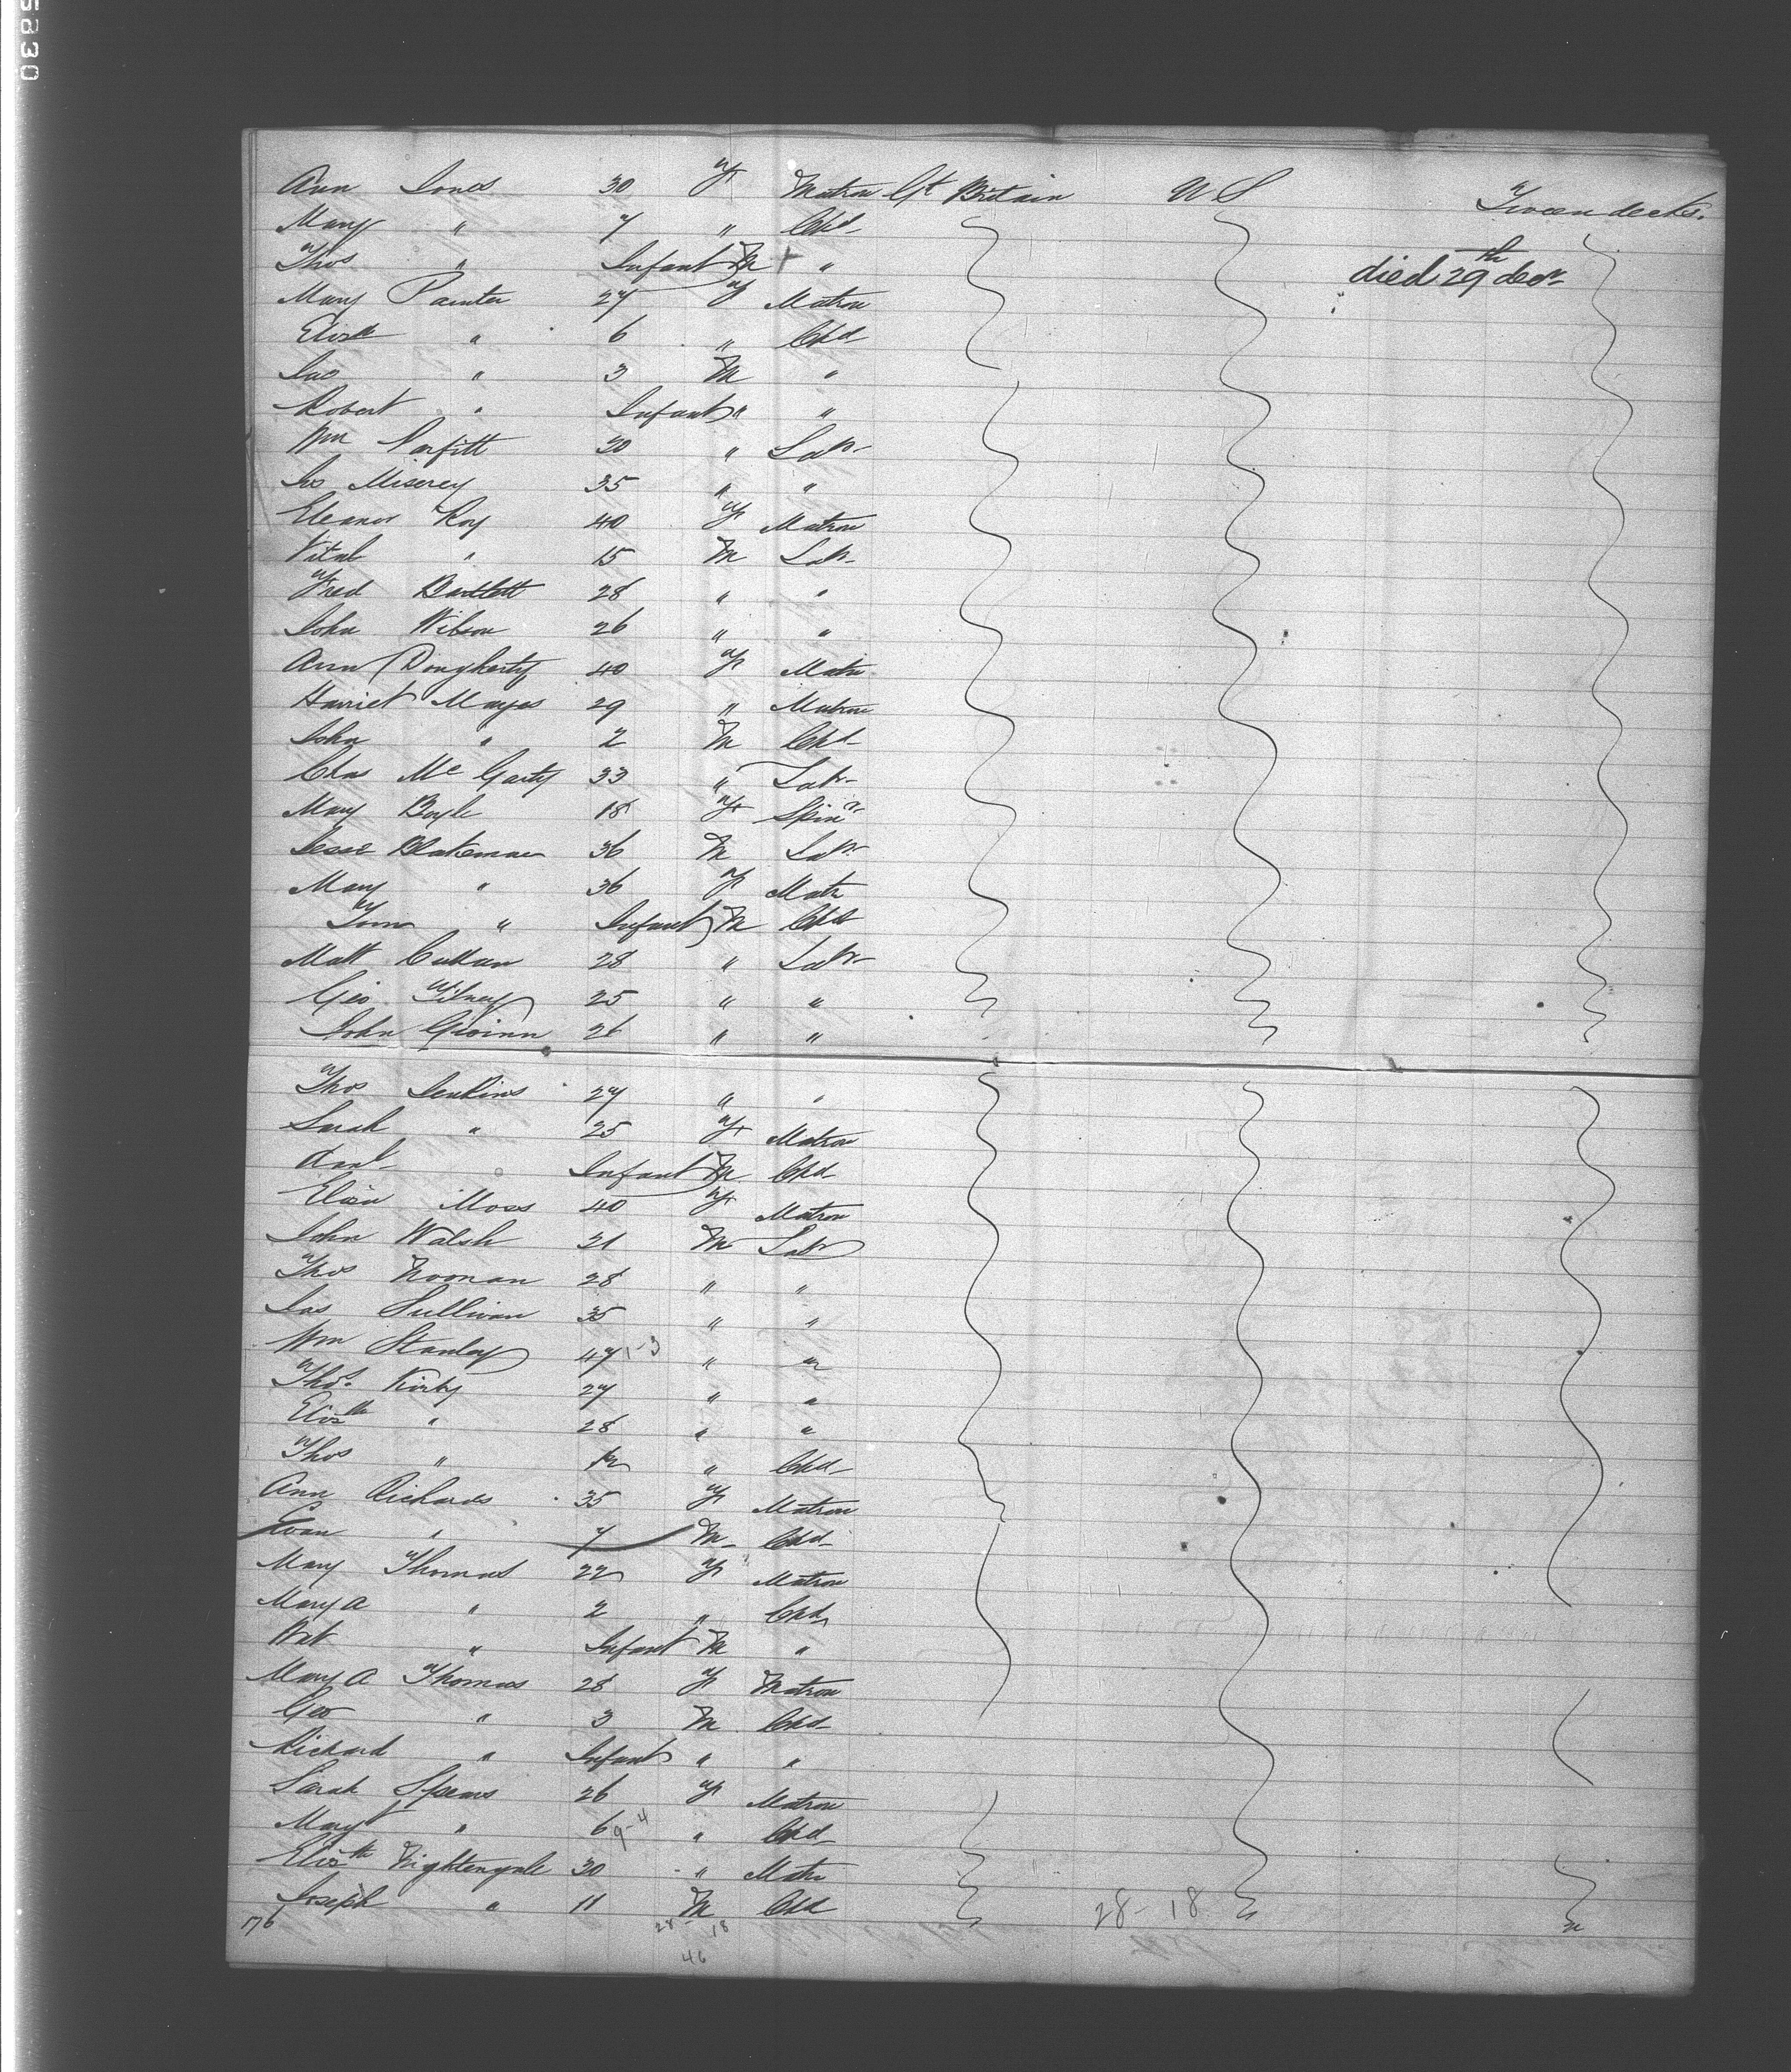 5830
Ann Jones 30 F Matron Gt Britain U S Tween decks.
Mary " 7 " Chd
Thos " Infant M " died 29th decr
Mary Painter 27 F Matron
Elizth " 6 " Chd
Jas " 3 M "
Robert " Infant " "
Wm Parfitt 20 " Labr
Jas Miserey 35 " "
Eleanor Roy 40 F Matron
Vital " 15 M Labr
Fred Bartlett 28 " "
John Wilson 26 " "
Ann Dougherty 40 F Matn
Harriet Mayes 29 " Matron
John " 2 M Chd
Chas Mc Garty 33 " Labr
Mary Boyle 18 F Spinr
Jesse Blakeman 36 M Labr
Mary " 36 F Matn
Tom " Infant M Chd
Matt Cullan 28 " Labr
Geo. Tilney 25 " "
John Gwinn 26 " "
Thos Jenkins 27 " "
Sarah " 25 F Matron
" Infant M Chd
Eliza Moss 40 F Matron
John Walsh 21 M Labr
Thos Noonan 28 " "
Jas Sullivan 35 " "
Wm Stanley 47 1-3 " "
Thos. Kirby 27 " "
Elizth " 28 " "
Thos " " Chd
Ann Richards 35 F Matron
Evan " 7 M Chd
Mary Thomas 22 F Matron
Mary A " 2 " Chd
Wat " Infant M "
Mary A Thomas 28 F Matron
Geo " 3 M Chd
Richard " Infant " "
Sarah Spears 26 F Matron
Mary " 6 9-4 " Chd
Elizth Nightengale 30 " Matn
Joseph " 11 M Chd 28-18 "
176 28 - 18
46